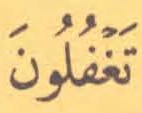 تَغۡفُلُونَ